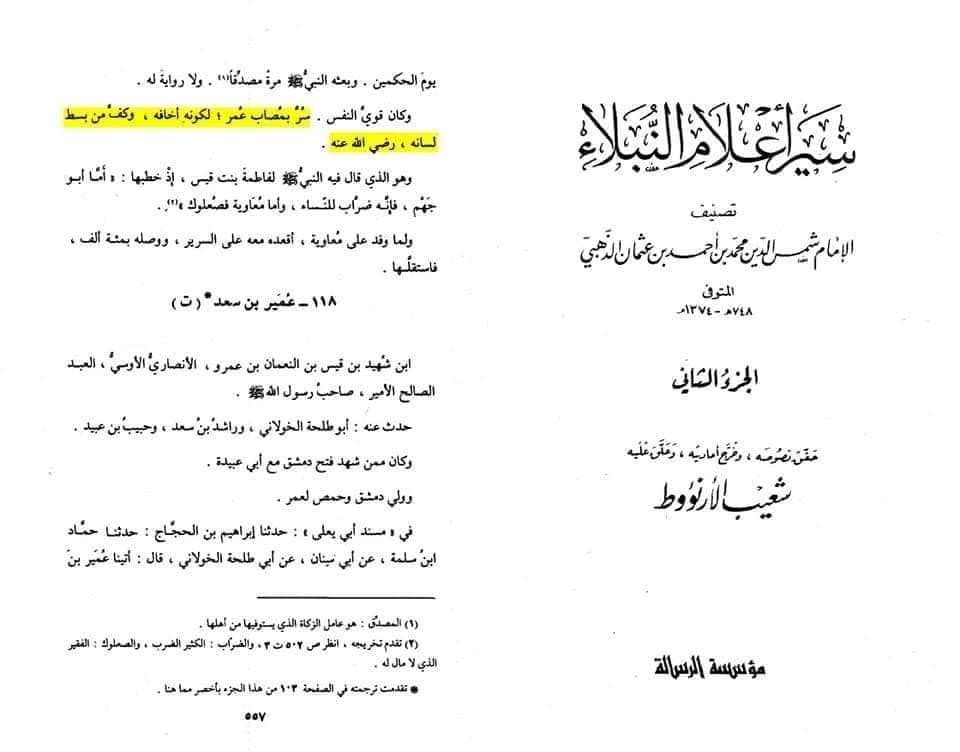 سير أعلام النبلاء
تصنيف
الإمام شمس الدين محمد بن أحمد بن عثمان الذهبي
المتوفى
٧٤٨هـ - ١٣٧٤م
الجزء الثاني
حقق نصوصه ، وخرج أحاديثه ، وعلق عليه
شعيب الأرنؤوط
مؤسسة الرسالة
يومَ الحكمين . وبعثه النبيُّ ﷺ مرةً مصدِّقاً(١) . ولا روايةَ له .
وكان قويَّ النفس . سُرَّ بمُصاب عُمر ؛ لكونه أخافه ، وكفَّ من بسط
لسانه ، رضي الله عنه .
وهو الذي قال فيه النبيُّ ﷺ لفاطمةَ بنت قيس ، إذْ خطبها : « أمَّا أبو
جَهْم ، فإنَّه ضرَّاب للنِّساء ، وأما مُعَاوية فصُعلوك »(٢) .
ولما وفد على مُعاوية ، أقعده معه على السرير ، ووصله بمئة ألف ،
فاستقلَّها .
١١٨ ـ عُمَير بن سعد * ( ت )
ابن شُهيد بن قيس بن النعمان بن عمرو ، الأنصاريُّ الأوسيُّ ، العبد
الصالح الأمير ، صاحبُ رسول الله ﷺ .
حدث عنه : أبو طلحة الخولاني ، وراشدُ بنُ سعد ، وحبيبُ بن عبيد .
وكان ممن شهد فتح دمشق مع أبي عبيدة .
وولي دمشق وحمص لعمر .
في « مسند أبي يعلى » : حدثنا إبراهيم بن الحجَّاج : حدثنا حمَّاد
ابنُ سلمة ، عن أبي سِنان ، عن أبي طلحة الخولاني ، قال : أتينا عُمَير بنَ
(١) المصدِّق : هو عامل الزكاة الذي يستوفيها من أهلها .
(٢) تقدم تخريجه ، انظر ص ٥٠٢ ت ٣ ، والضرَّاب : الكثير الضرب ، والصعلوك : الفقير
الذي لا مال له .
* تقدمت ترجمته في الصفحة ١٠٣ من هذا الجزء بأخصر مما هنا .
٥٥٧